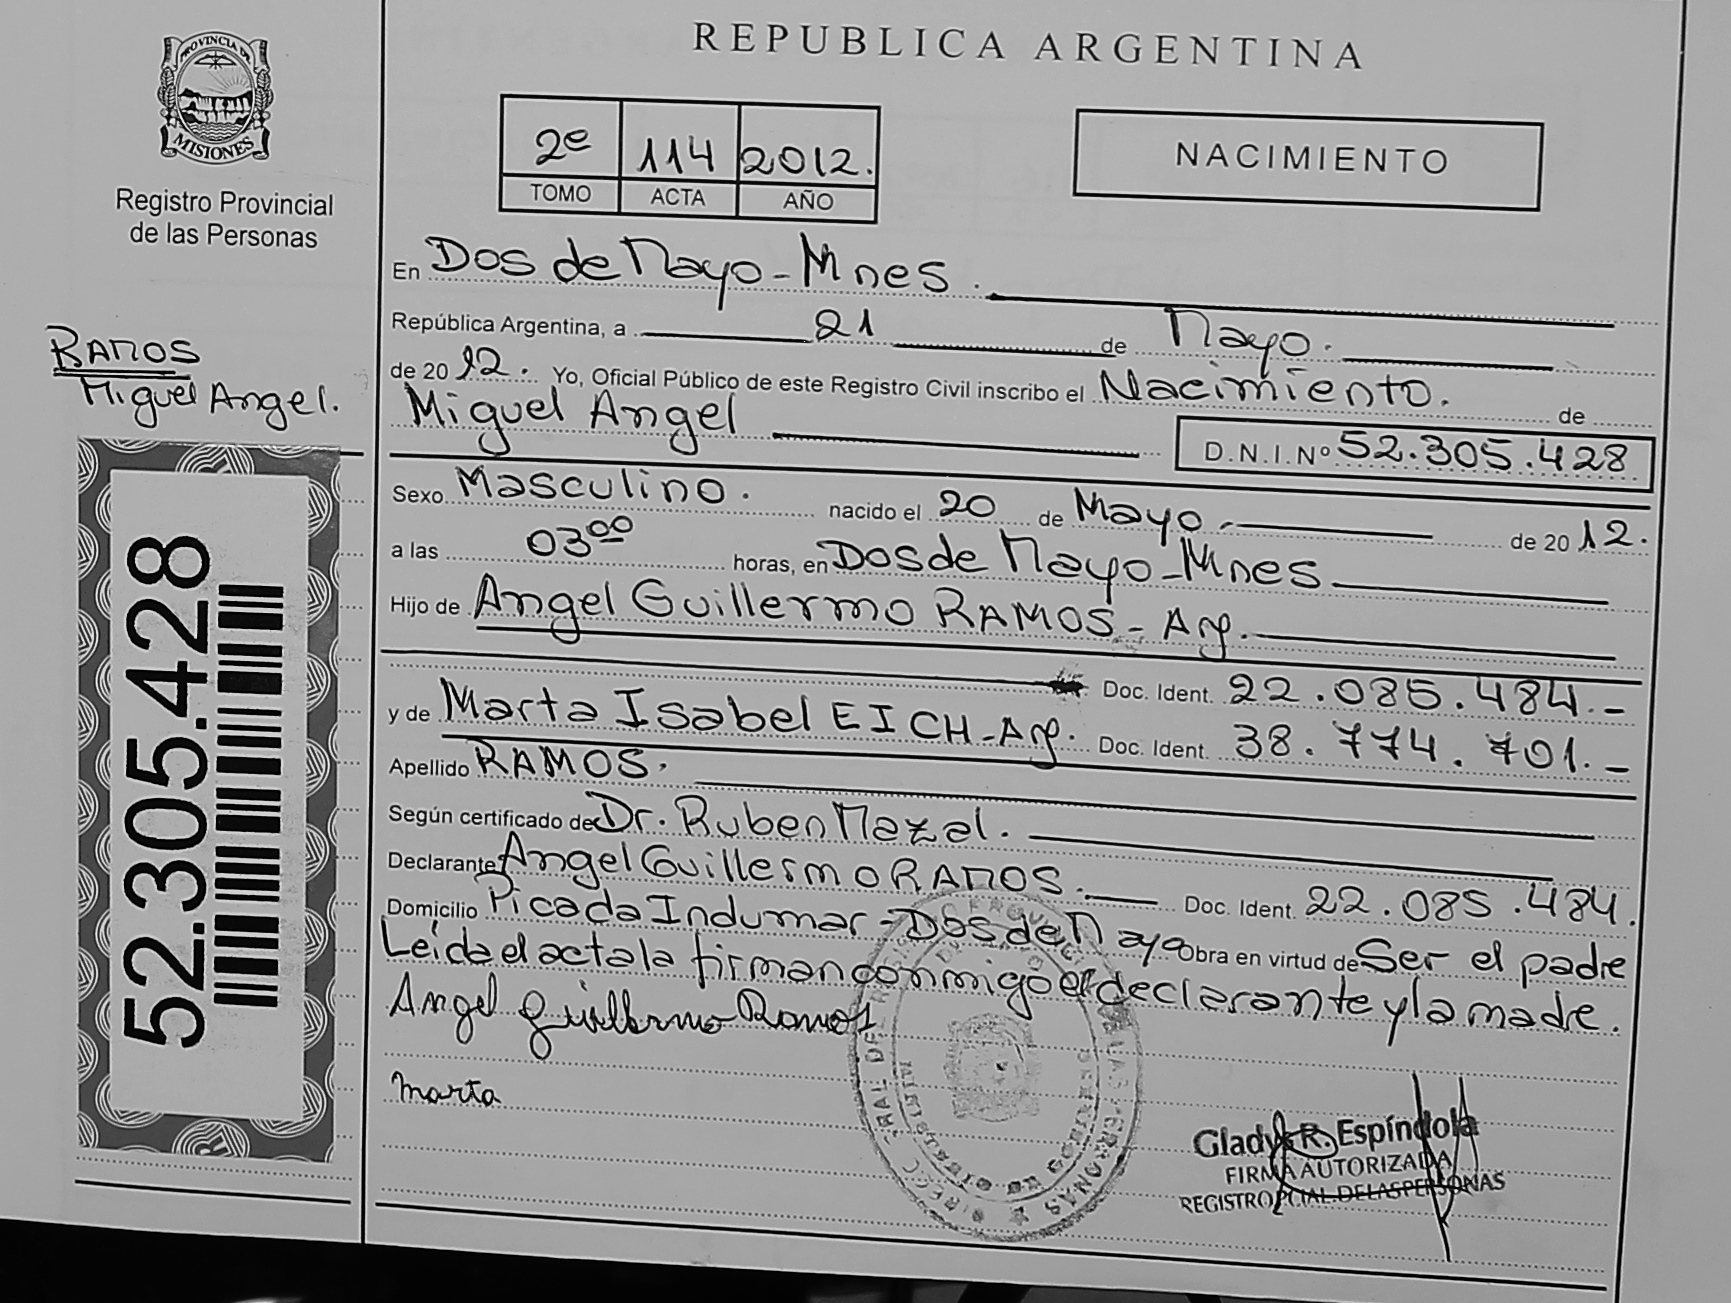 PROVINCIA DE
MISIONES
Registro Provincial
de las Personas
RAMOS
Miguel Angel.
52.305.428
REPUBLICA ARGENTINA
2e 114 2012.
TOMO ACTA AÑO
NACIMIENTO
En Dos de Mayo - Mnes.
República Argentina, a 21 de Mayo.
de 2012. Yo, Oficial Público de este Registro Civil inscribo el Nacimiento. de
Miguel Angel D.N.I.Nº 52.305.428
Sexo Masculino. nacido el 20 de Mayo. de 2012.
a las 03⁰⁰ horas, en Dos de Mayo - Mnes
Hijo de Angel Guillermo RAMOS - Arg.
Doc. Ident. 22.085.484.-
y de Marta Isabel EICH - Arg. Doc. Ident. 38.774.701.-
Apellido RAMOS.
Según certificado de Dr. Ruben Mazal.
Declarante Angel Guillermo RAMOS. Doc. Ident. 22.085.484.
Domicilio Picada Indumar - Dos de Mayo Obra en virtud de Ser el padre
Leída el acta la firman conmigo el declarante y la madre.
Angel Guillermo Ramos
Marta
Gladys R. Espíndola
FIRMA AUTORIZADA
REGISTRO PCIAL. DE LAS PERSONAS